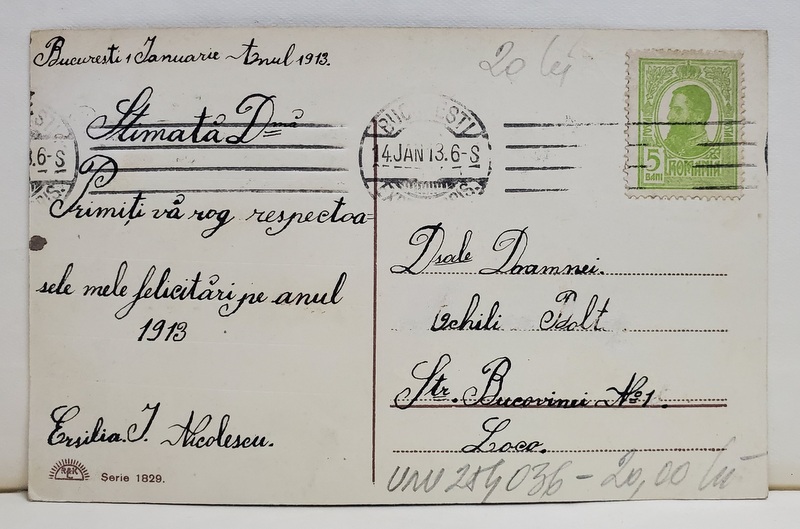 Bucuresti 1 Ianuarie Anul 1913.
Stimată Dnă
Primiți vă rog respectoa=
sele mele felicitări pe anul
1913
Ersilia. I. Nicolescu.
Serie 1829.
20 lei
3.6-S
BUCURESTI
14.JAN 13.6-S
5
BANI
ROMANIA
Dsale Doamnei.
Tsolt
Str. Bucovinei No 1.
Loco.
20,00 lei